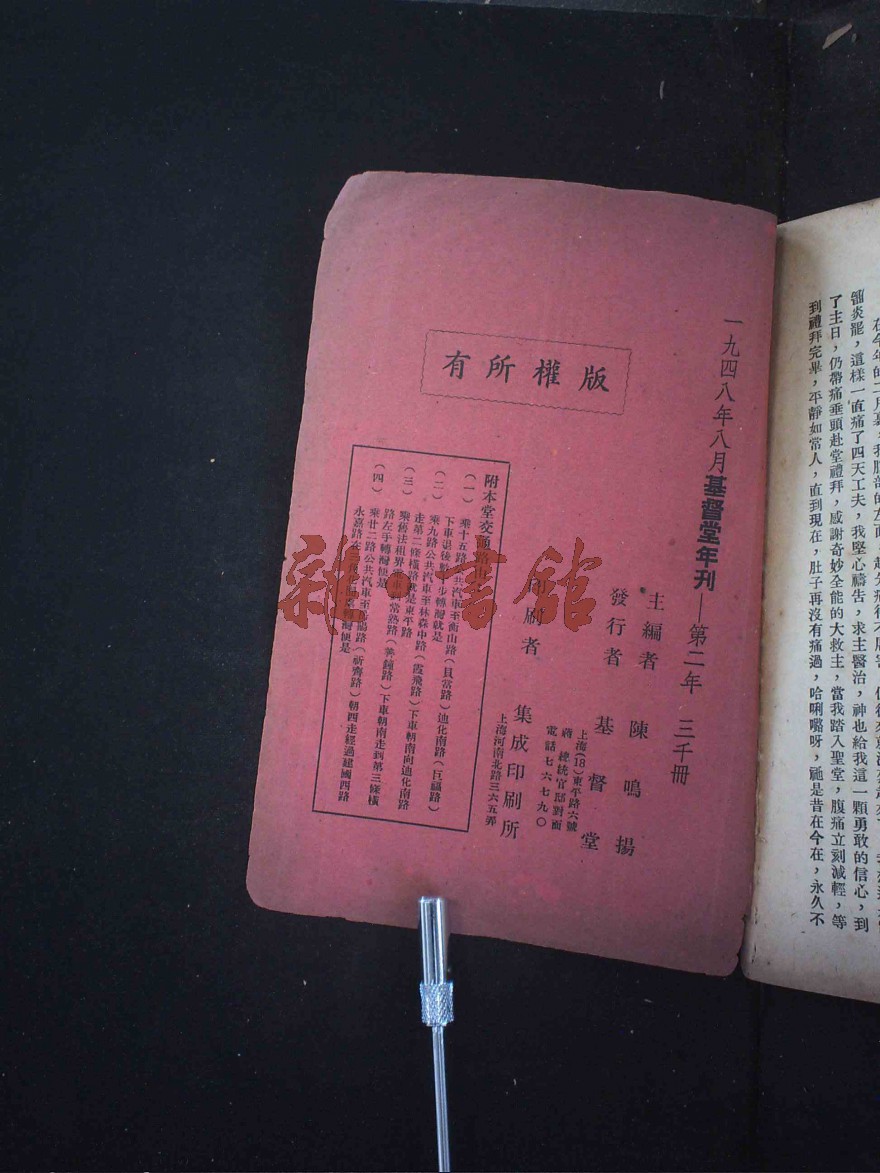 一九四八年八月基督堂年刊——第二年　三千冊
主編者　陳鳴揚
發行者　基督堂
上海(18)東平路六號
蔣總統官邸對面
電話七六七九〇
印刷者　集成印刷所
上海河南北路三六五弄
版權所有
附本堂交通路
(一)　乘十五路公共汽車至衡山路(貝當路)迪化南路(巨福路)
下車退後數步轉灣就是
(二)　乘九路公共汽車至林森中路(霞飛路)下車朝南向迪化南路
走第二條橫路就是東平路
(三)　乘舊法租界電車到常熟路(善鐘路)下車朝南走到第三條橫
路左手轉灣便是
(四)　乘廿二路公共汽車至岳陽路(祈齊路)朝西走經過建國西路
永嘉路灣便是
雜·書館
髓炎罷，這樣一直痛了四天工夫，我堅心禱告，求主醫治，神也給我這一顆勇敢的信心，到
了主日，仍帶痛垂頭赴堂禮拜，感謝奇妙全能的大救主，當我踏入聖堂，腹痛立刻減輕，等
到禮拜完畢，平靜如常人，直到現在，肚子再沒有痛過，哈唎嚕呀，祂是昔在今在，永久不